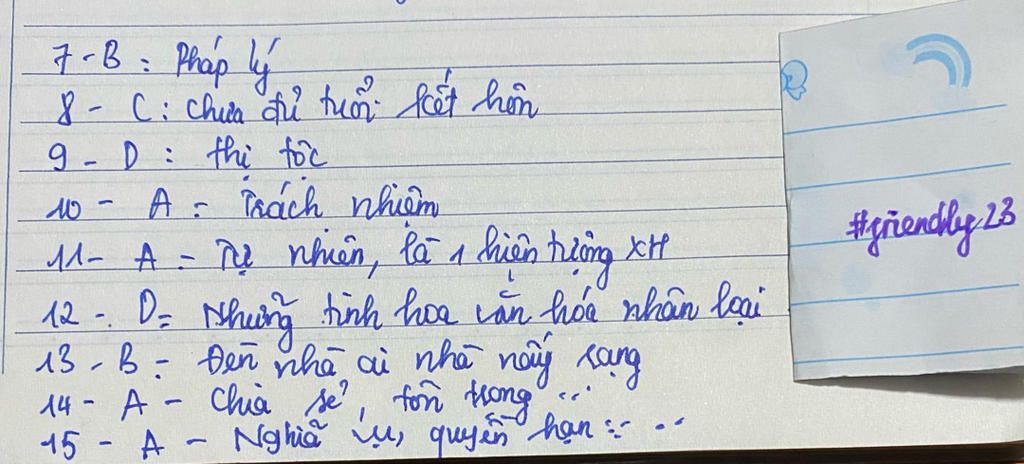 7 - B : Pháp lý
8 - C : Chưa đủ tuổi kết hôn
9 - D : thị tộc
10 - A = Trách nhiệm
11 - A = Tự nhiên, là 1 hiện tượng XH
12 - D = Những tinh hoa văn hóa nhân loại
13 - B = Đèn nhà ai nhà nấy rạng
14 - A - Chia sẻ, tôn trọng ...
15 - A - Nghĩa vụ, quyền hạn ...
#friendly23